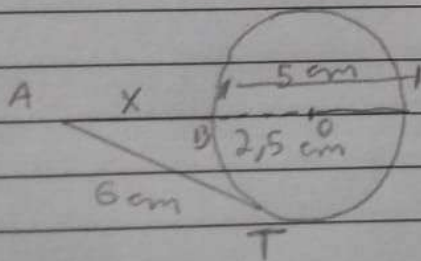 5 cm
A X
B 2,5 cm O
6 cm
T